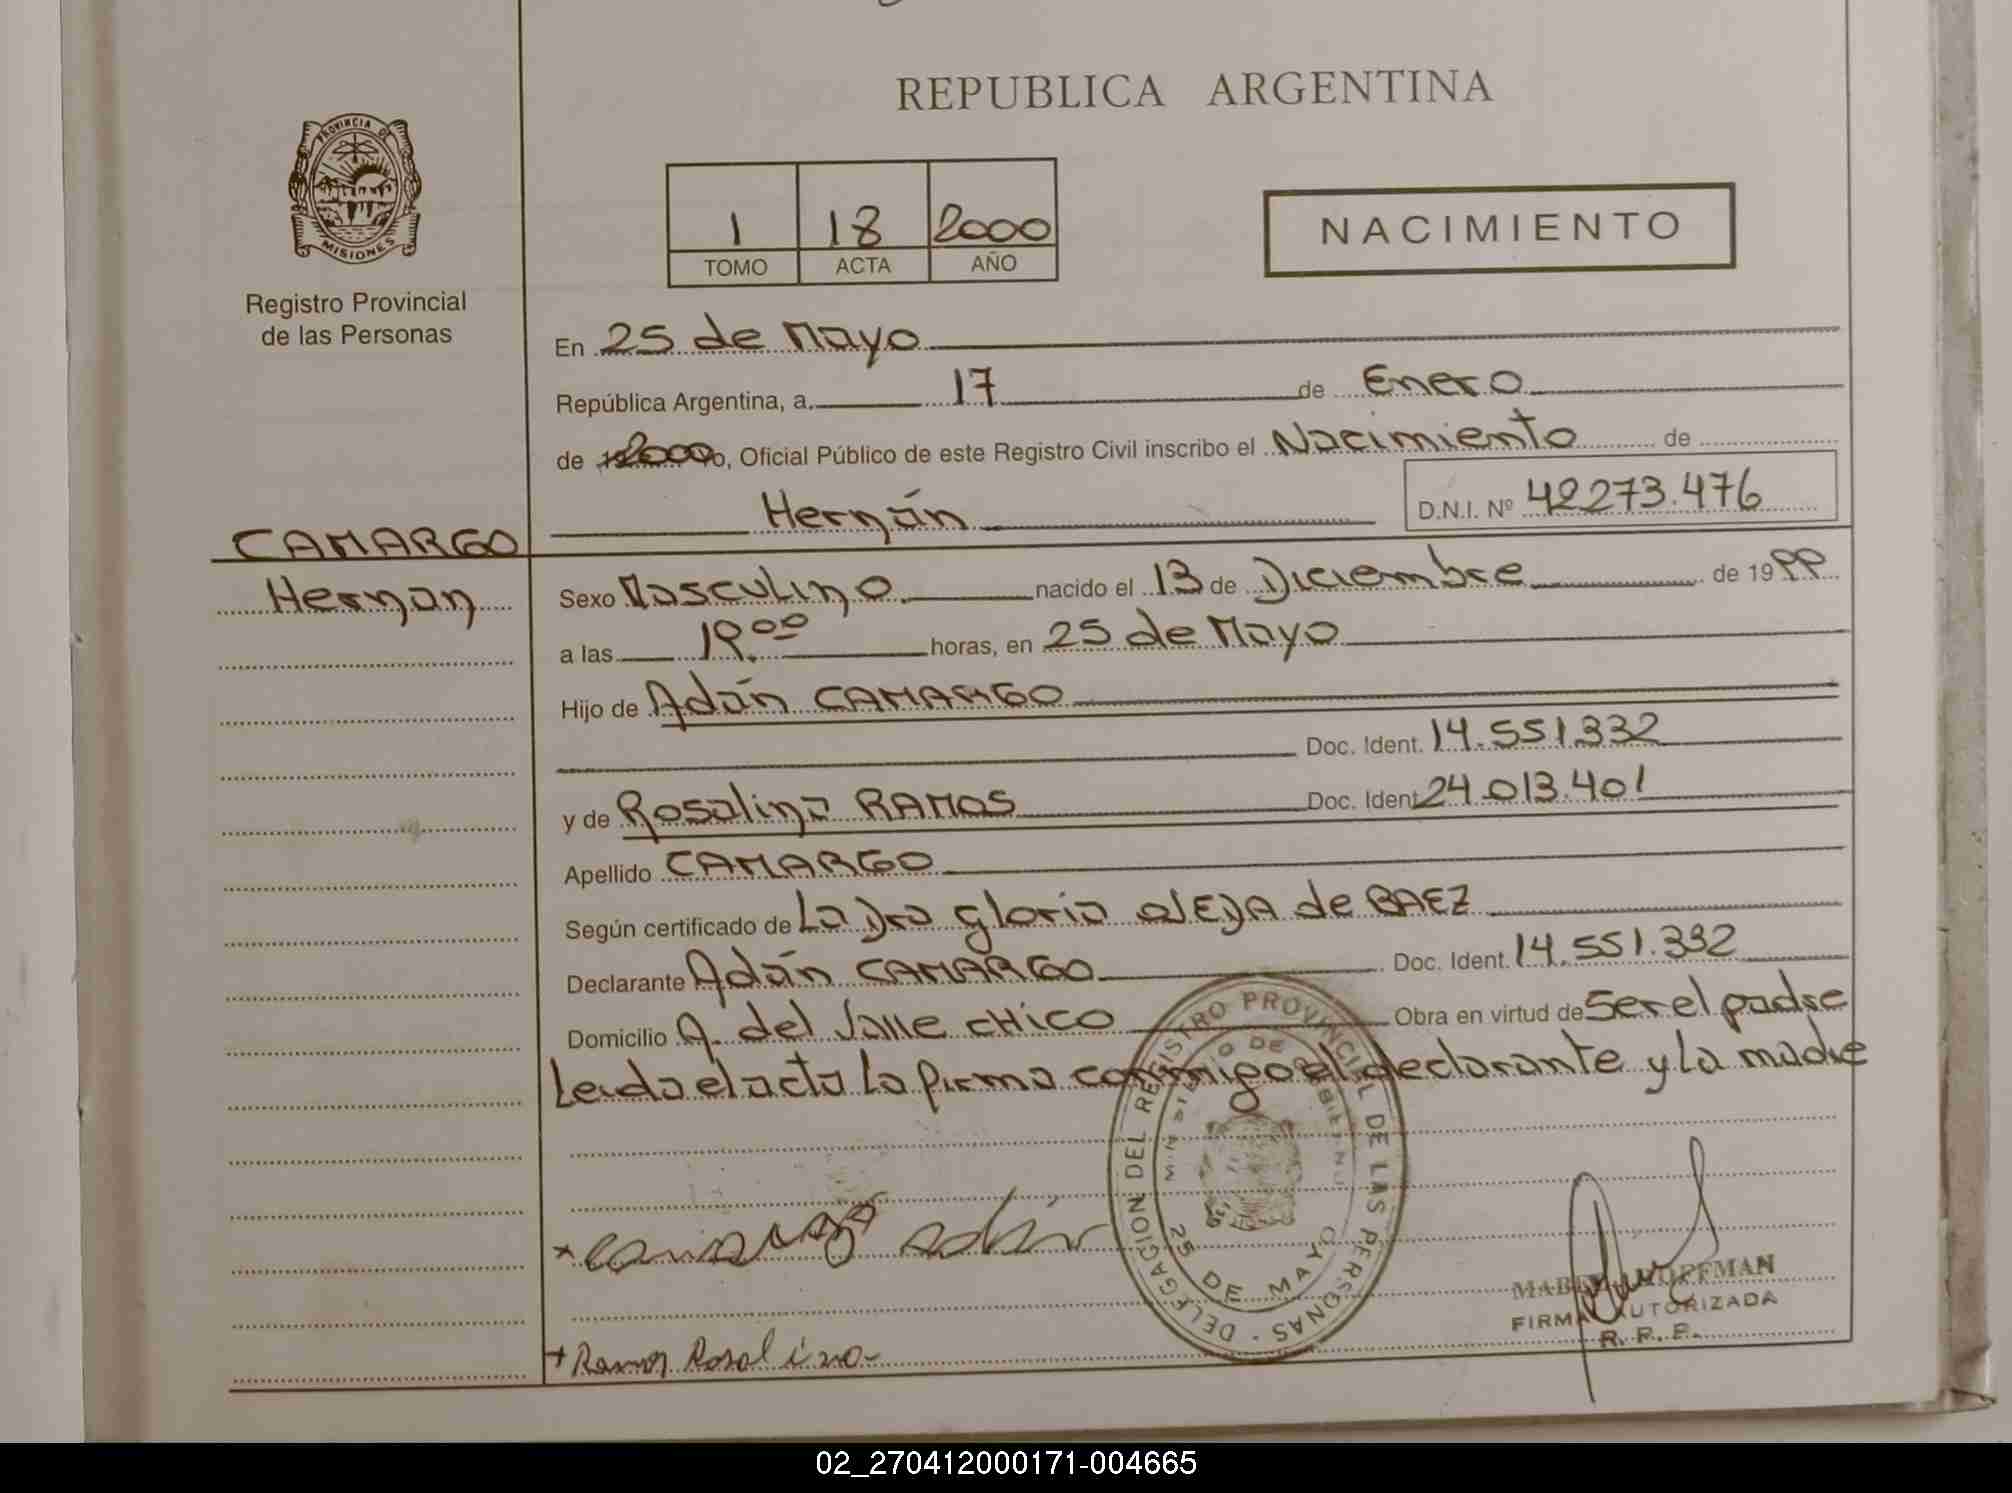 REPUBLICA ARGENTINA
PROVINCIA DE
MISIONES
Registro Provincial
de las Personas
1 18 2000
TOMO ACTA AÑO
NACIMIENTO
En 25 de Mayo
República Argentina, a 17 de Enero
de 2000 yo, Oficial Público de este Registro Civil inscribo el Nacimiento de
Hernán D.N.I. Nº 42273.476
CAMARGO
Hernan
Sexo Masculino nacido el 13 de Diciembre de 1999
a las 19.00 horas, en 25 de Mayo
Hijo de Adán CAMARGO
Doc. Ident. 14.551.332
y de Rosalina RAMOS Doc. Ident. 24.013.401
Apellido CAMARGO
Según certificado de La Dra Gloria OJEDA de BAEZ
Declarante Adán CAMARGO Doc. Ident. 14.551.332
Domicilio A. del Valle CHICO Obra en virtud de Ser el padre
Leida el acta la firma conmigo el declarante y la madre
DELEGACION DEL REGISTRO PROVINCIAL DE LAS PERSONAS
MINISTERIO DE GOBIERNO
25 DE MAYO
+ Camargo Adán
HOFFMAN
FIRMA AUTORIZADA
R. P. P.
+ Ramos Rosalina
02_270412000171-004665